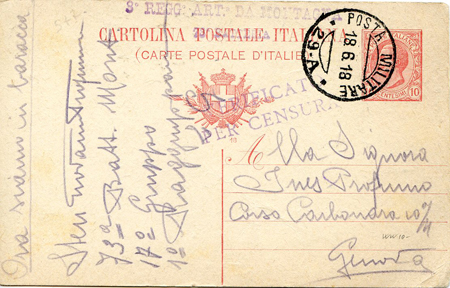 3º REGG. ART. DA MONTAGNA
CARTOLINA POSTALE ITALIANA
(CARTE POSTALE D'ITALIE)
POSTA MILITARE
18.6.18
29-A
VERIFICATO
PER CENSURA
10
Alla Signora
Ines Profumo
Corso Carbonara 10/
Genova
Ora siamo in baracca
Profumo
73ª Batt. Mont.
17º Gruppo
1º Raggrupp.